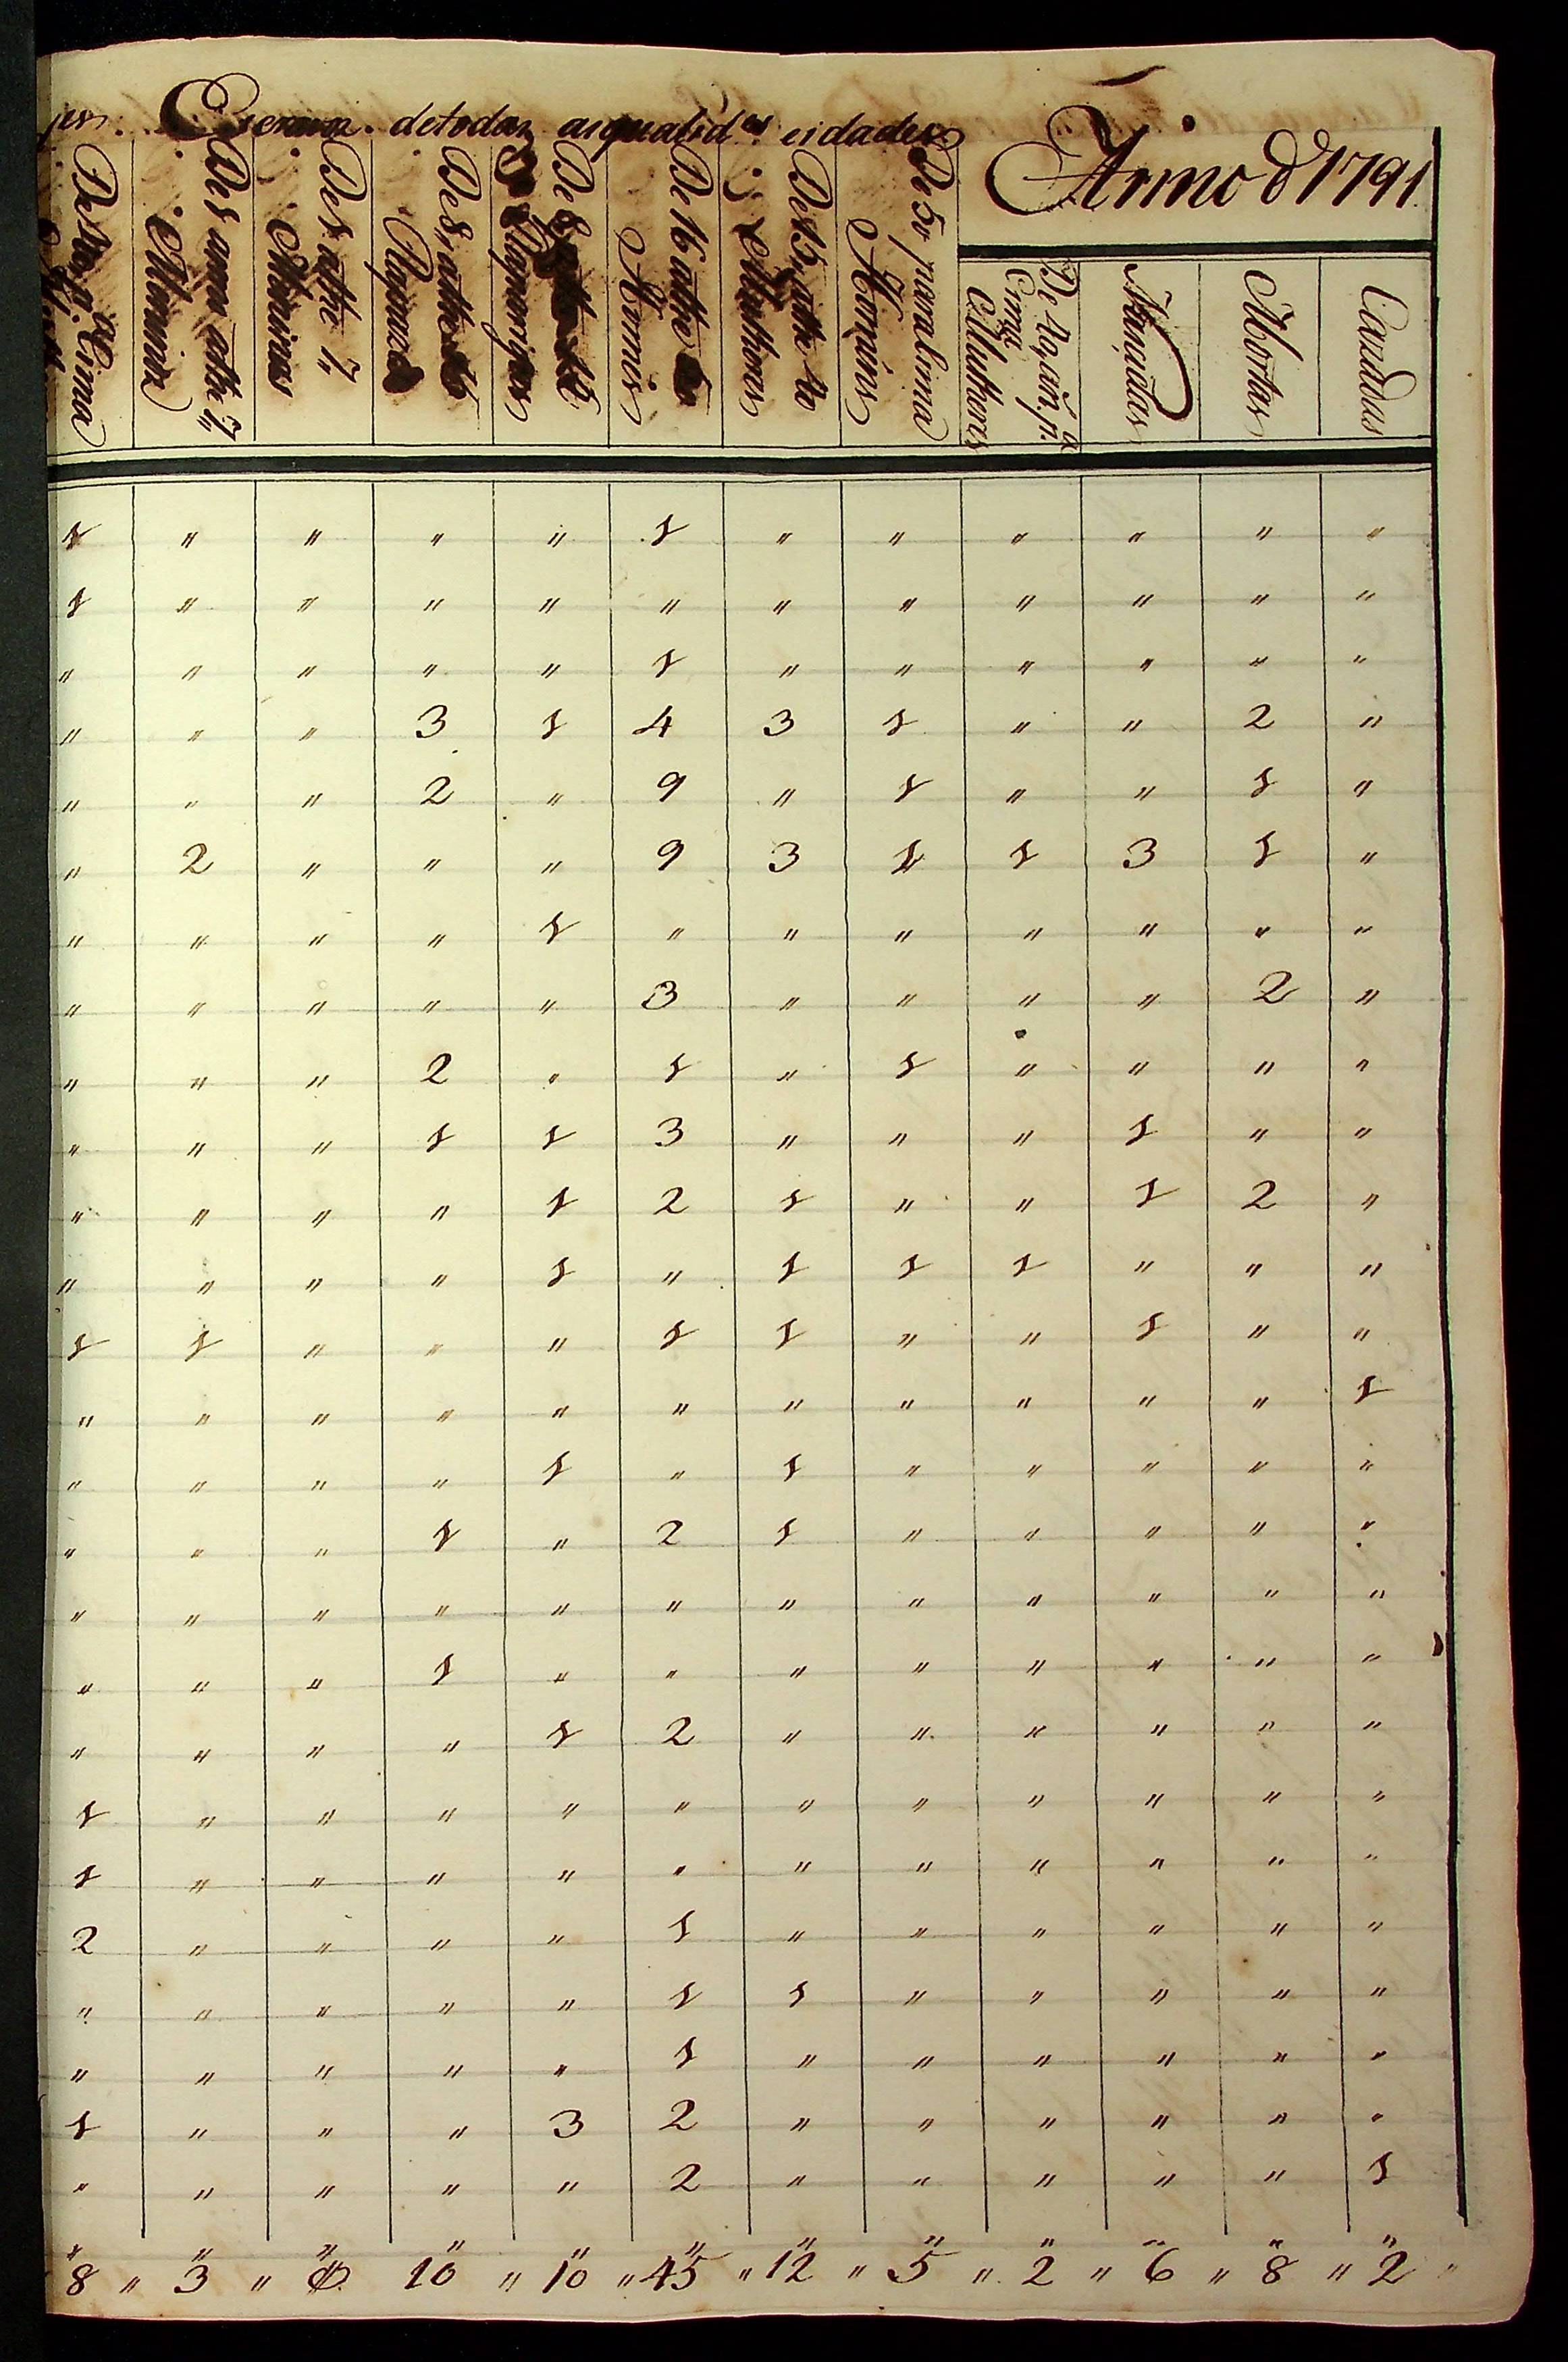 jes. Escravos de todas as qualid.es e idades
Anno d 1791
De 40 p.a Cima
De 1 anno athe 7 Meninos
De 1 athe 7 Meninas
De 8, athe Rapazes
De 8 Raparigas
De 16 athe Homens
De 15, athe 40 Mulheres
De 50 para sima Homens
De 40, an.s p.a Cima Mulheres
Nascidos
Mortos
Cazados
1 " " " " 1 " " " " " "
1 " " " " " " " " " " "
" " " " " 1 " " " " " "
" " " 3 1 4 3 1 " " 2 "
" " " 2 " 9 " 1 " " 1 "
" 2 " " " 9 3 1 1 3 1 "
" " " " 1 " " " " " " "
" " " " " 3 " " " " 2 "
" " " 2 " 1 " 1 " " " "
" " " 1 1 3 " " " 1 " "
" " " " 1 2 1 " " 1 2 "
" " " " 1 " 1 1 1 " " "
1 1 " " " 1 1 " " 1 " "
" " " " " " " " " " " 1
" " " " 1 " 1 " " " " "
" " " 1 " 2 1 " " " " "
" " " " " " " " " " " "
" " " 1 " " " " " " " "
" " " " 1 2 " " " " " "
1 " " " " " " " " " " "
1 " " " " " " " " " " "
2 " " " " 1 " " " " " "
" " " " " 1 1 " " " " "
" " " " " 1 " " " " " "
1 " " " 3 2 " " " " " "
" " " " " 2 " " " " " 1
8 " 3 " 0 10 " 10 " 45 " 12 " 5 " 2 " 6 " 8 " 2 "